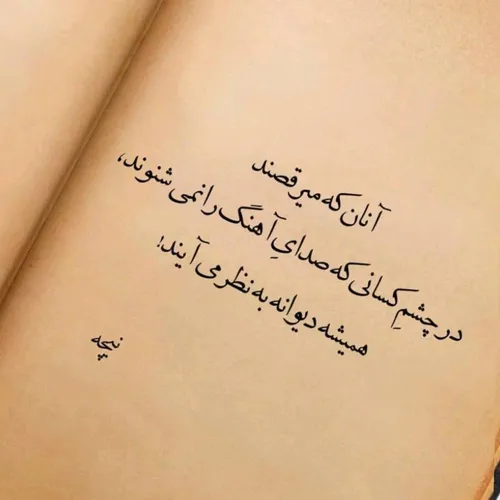 آنان که میرقصند
در چشمِ کسانی که صدایِ آهنگ را نمی شنوند،
همیشه دیوانه به نظر می آیند!
نیچه